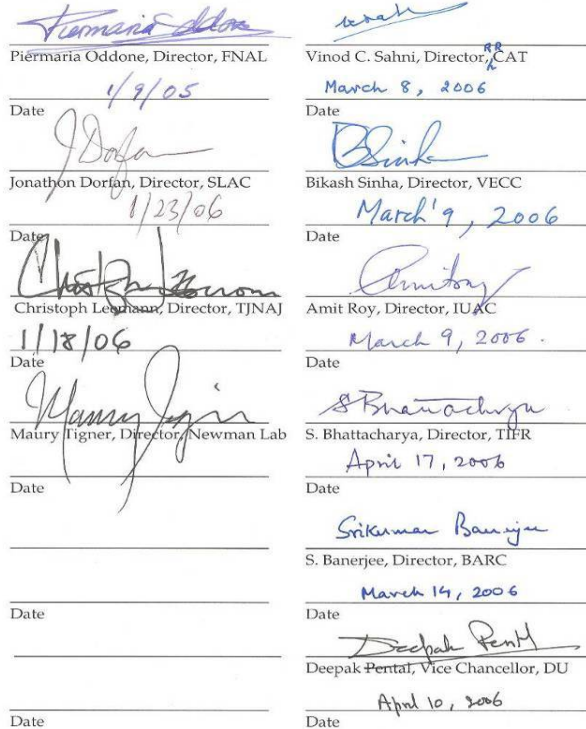 Piermaria Oddone
Piermaria Oddone, Director, FNAL
1/9/05
Date
J Dorfan
Jonathon Dorfan, Director, SLAC
1/23/06
Date
Christoph Leemann, Director, TJNAJ
1/18/06
Date
Maury Tigner
Maury Tigner, Director, Newman Lab
Date
Date
Date
Vinod C. Sahni, Director, RRCAT
March 8, 2006
Date
BSinha
Bikash Sinha, Director, VECC
March' 9, 2006
Date
Amit Roy, Director, IUAC
March 9, 2006.
Date
S Bhattacharya
S. Bhattacharya, Director, TIFR
April 17, 2006
Date
Srikumar Banerjee
S. Banerjee, Director, BARC
March 14, 2006
Date
Deepak Pental
Deepak Pental, Vice Chancellor, DU
April 10, 2006
Date